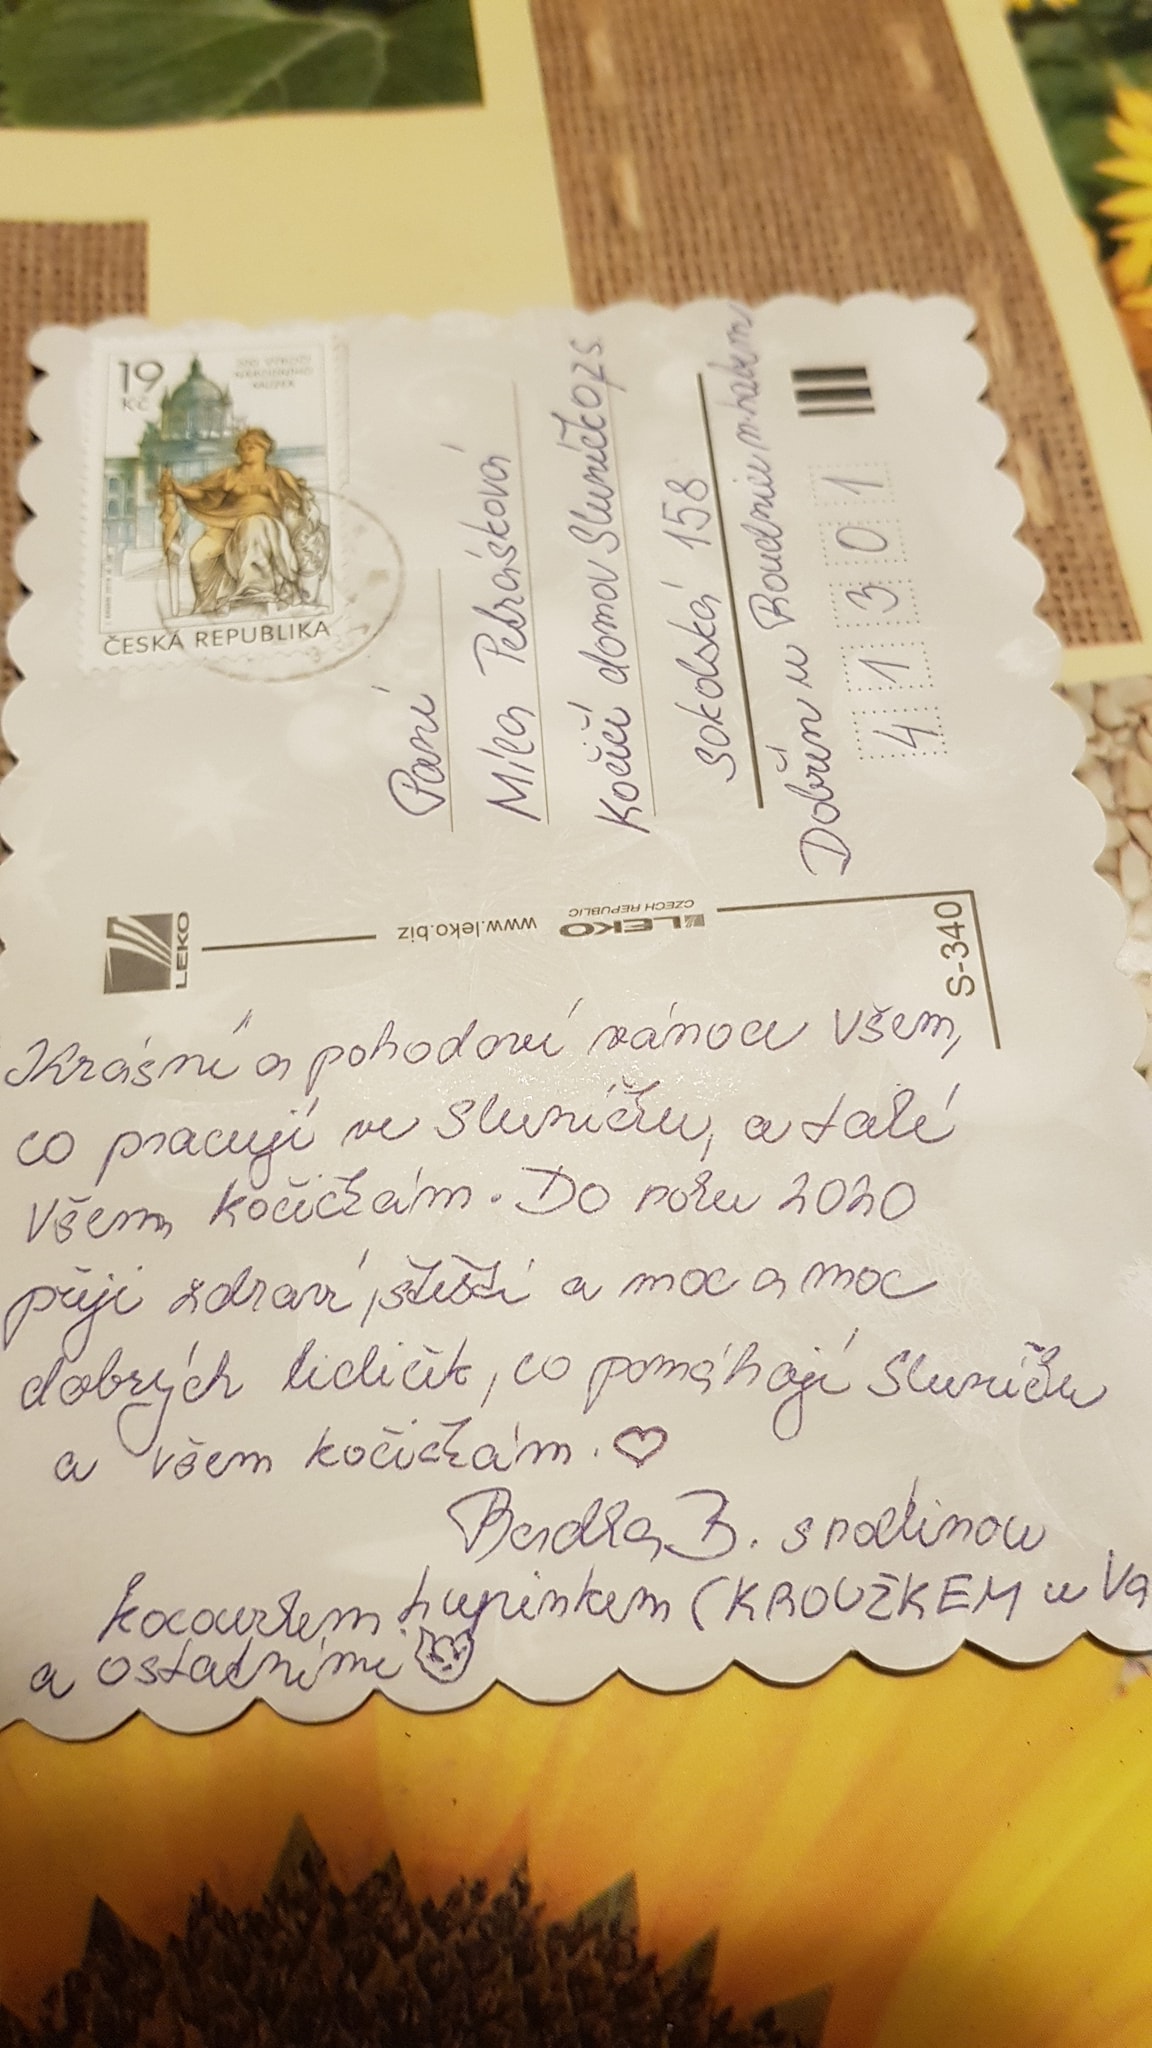 19
Kč
200 VÝROČÍ
NÁRODNÍHO
MUZEA
ČESKÁ REPUBLIKA
Paní
Míla Petrásková
Kočičí domov Sluníčko ops
sokolská 158
Dobřín u Roudnice n. labem
4 1 3 0 1
LEKO
www.leko.biz
LEKO
CZECH REPUBLIC
S-340
Krásné a pohodové vánoce všem,
co pracují ve Sluníčku, a také
všem kočičkám. Do roku 2020
přeji zdraví, štěstí a moc a moc
dobrých lidiček, co pomáhají Sluníčku
a všem kočičkám. ♡
Radka B. s rodinou
kocourkem (KROUŽKEM u Vá
a ostatními